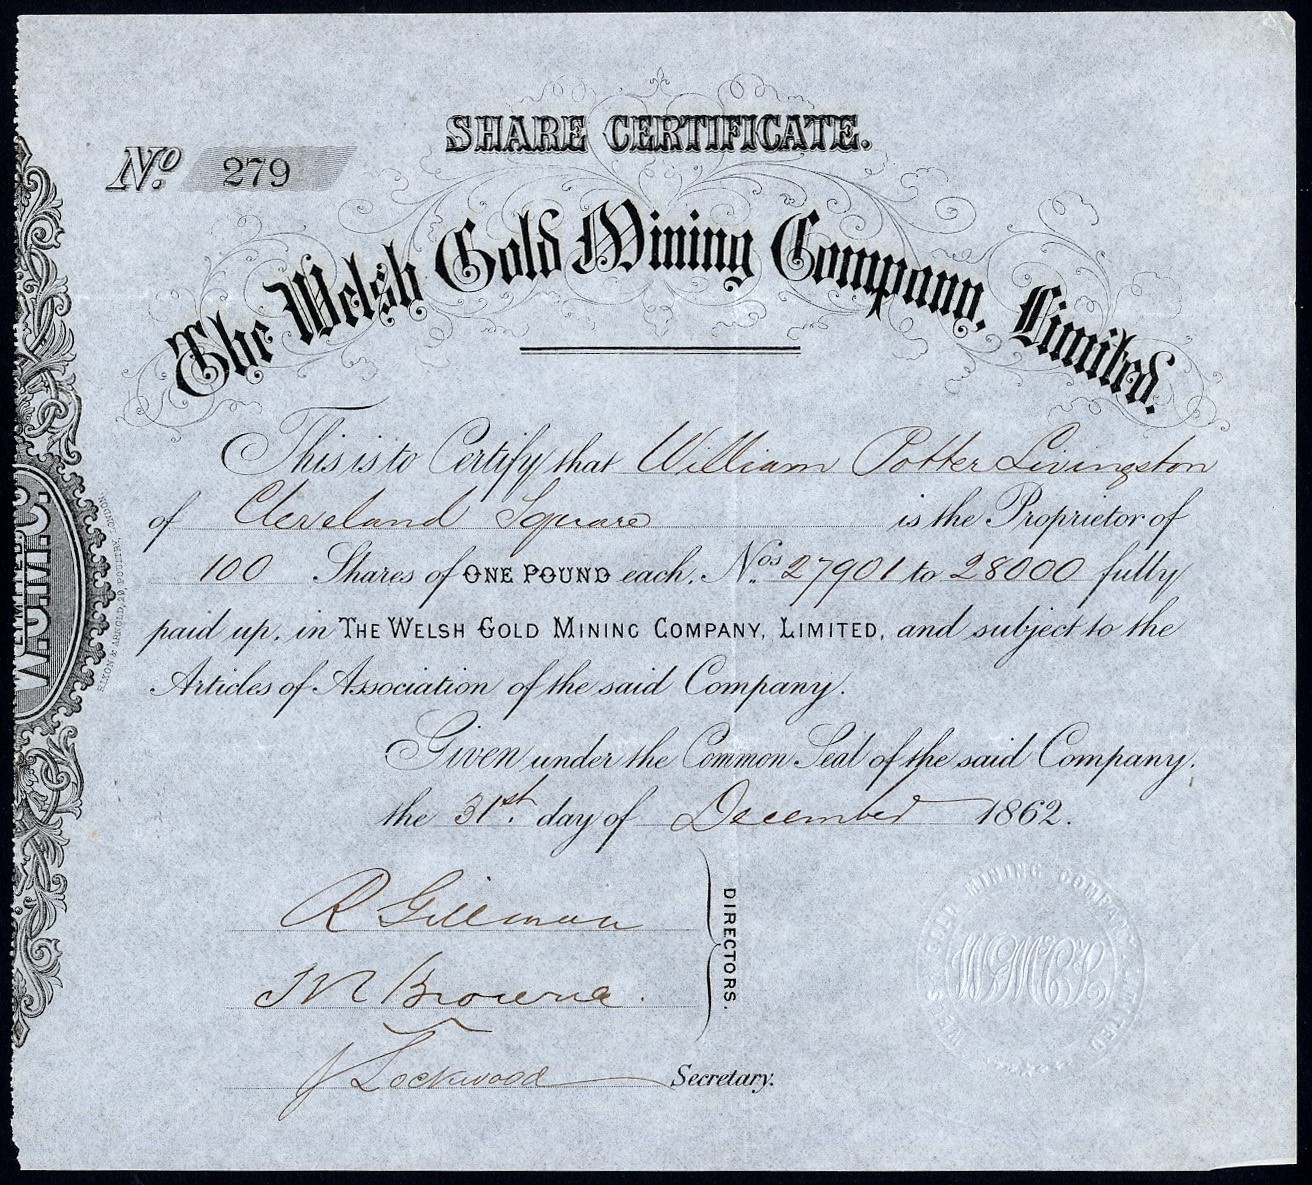 SHARE CERTIFICATE.
No. 279
The Welsh Gold Mining Company, Limited.
This is to Certify that William Potter Livingston
of Cleveland Square is the Proprietor of
100 Shares of ONE POUND each, Nos. 27901 to 28000 fully
paid up, in THE WELSH GOLD MINING COMPANY, LIMITED, and subject to the
Articles of Association of the said Company.
Given under the Common Seal of the said Company,
the 31st. day of December 1862.
R Gillman
Browne.
DIRECTORS.
J Lockwood Secretary.
W.G.M.C.
NIXON & ARNOLD, 29, POULTRY, LONDON.
WELSH GOLD MINING COMPANY LIMITED
WGMCL